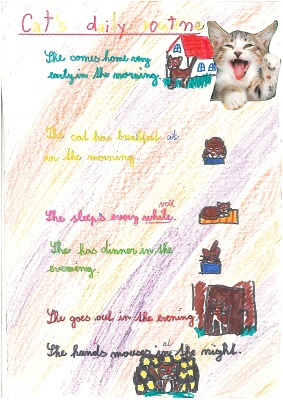 Cat's daily routine
She comes home very
early in the morning.
The cat has breakfast at
in the morning.
She sleeps every while.
She has dinner in the
evening.
She goes out in the evening
at
She hands mouses in the night.